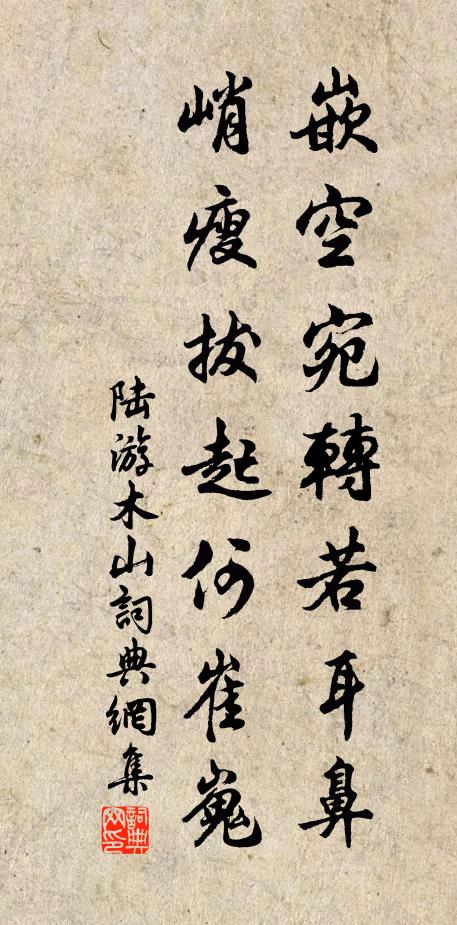 嵌空宛轉若耳鼻
峭瘦拔起何崔嵬
陆游木山詞典網集
詞典網印